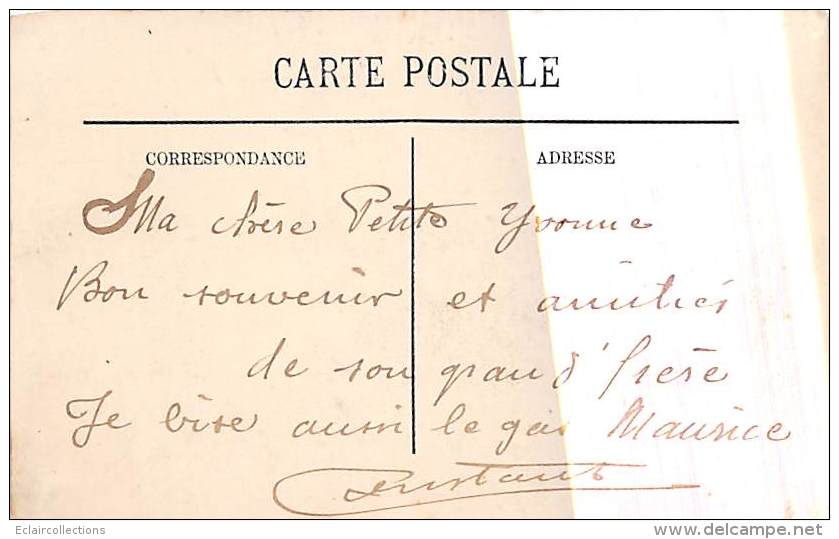 CARTE POSTALE
CORRESPONDANCE
ADRESSE
Ma chère Petite Yvonne
Bon souvenir et amitiés
de son grand frère
Je bise aussi le gas Maurice
Constant
Eclaircollections
delcampe.net